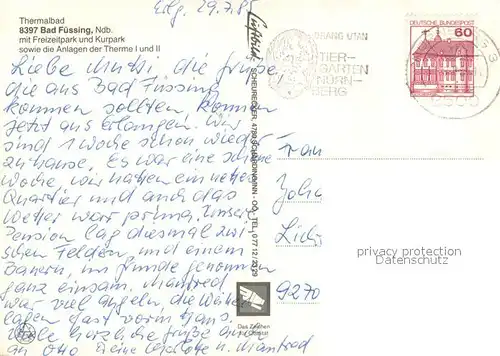 Thermalbad
8397 Bad Füssing, Ndb.
mit Freizeitpark und Kurpark
sowie die Anlagen der Therme I und II
Erlg. 29.7.85
Liebe Mutti die Grüße
die aus Bad Füssing
kommen sollten kommen
jetzt aus Erlangen. Wir
sind 1 Woche schon wieder
zuhause. Es war eine schöne
Woche, wir hatten ein nettes
Quartier und auch das
Wetter war prima. Unsere
Pension lag diesmal zwi
schen Feldern und einem
Bauern, im Grunde genommen
ganz einsam. Manfred
war viel angeln, die Weiher
lagen fast vorm Haus.
herzliche Grüße auch
an Otto Deine Manfred
Luftbild
ORANG UTAN
TIER-
GARTEN
NÜRN-
BERG
DEUTSCHE BUNDESPOST
60
Frau
9270
privacy protection
Datenschutz
Das Zeichen